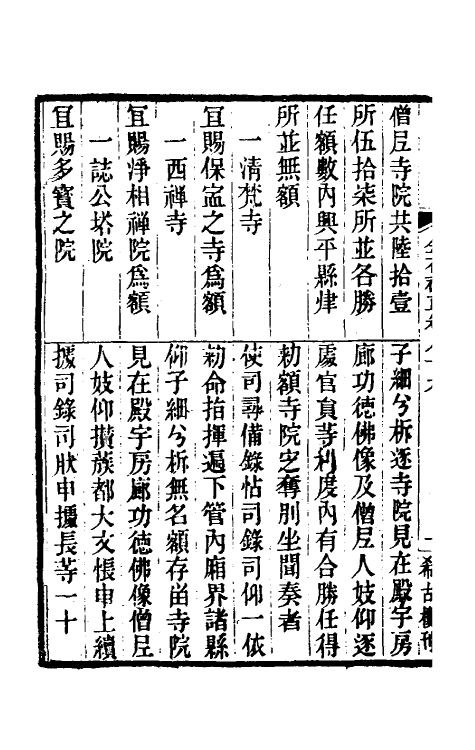 僧尼寺院共陸拾壹
所伍拾柒所並各勝
任額數內興平縣肂
所並無額
一清梵寺
宜賜保寍之寺爲額
一西禅寺
宜賜淨相禅院爲額
一誌公塔院
宜賜多寶之院
子細兮柝逐寺院見在殿宇房
廊功徳佛像及僧尼人妓仰逐
處官員等利度內有合勝任得
勅額寺院㝎奪別坐聞奏者
使司尋備錄帖司錄司仰一依
勅命指揮遍下管內廂界諸縣
仰子細兮柝無名額存畄寺院
見在殿宇房廊功徳佛像僧尼
人妓仰攢蔟都大文帳申上續
據司錄司狀申據長等一十